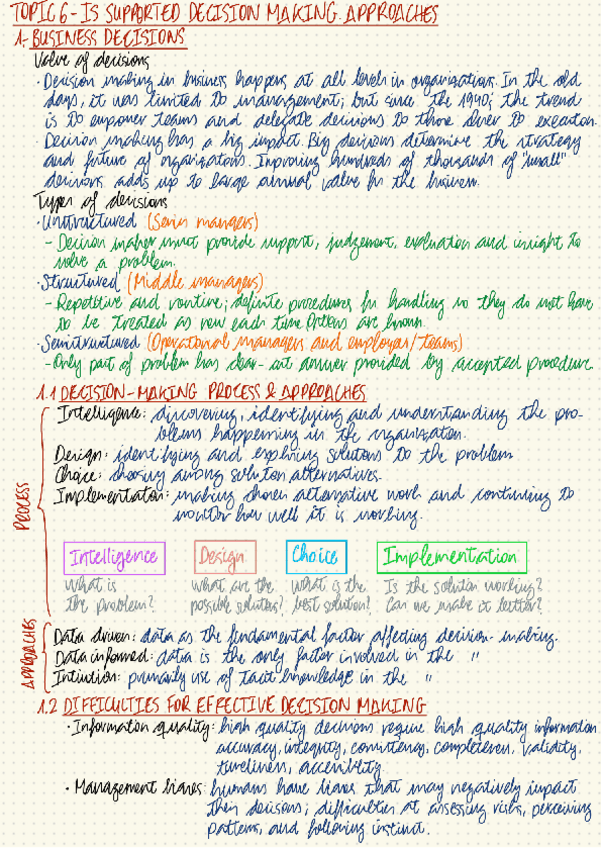 TOPIC 6 - IS SUPPORTED DECISION MAKING APPROACHES
1. BUSINESS DECISIONS
Value of decisions
· Decision making in business happens at all levels in organizations. In the old
days, it was limited to management; but since the 1990s the trend
is to empower teams and delegate decisions to those closer to execution.
· Decision making has a big impact. Big decisions determine the strategy
and future of organizations. Improving hundreds of thousands of "small"
decisions adds up to large annual value for the business.
Types of decisions
· Unstructured (Senior managers)
- Decision maker must provide support, judgement, evaluation and insight to
solve a problem.
· Structured (Middle managers)
- Repetitive and routine; definite procedures for handling so they do not have
to be treated as new each time. Options are known
· Semistructured (Operational managers and employees/teams)
- Only part of problem has clear-cut answer provided by accepted procedure.
1.1 DECISION-MAKING PROCESS & APPROACHES
PROCESS
Intelligence: discovering, identifying and understanding the pro-
blems happening in the organization.
Design: identifying and exploring solutions to the problem
Choice: choosing among solution alternatives.
Implementation: making chosen alternative work and continuing to
monitor how well it is working.
Intelligence Design Choice Implementation
What is What are the What is the Is the solution working?
the problem? possible solutions? best solution? Can we make it better?
APPROACHES
Data driven: data as the fundamental factor affecting decision-making.
Data informed: data is the only factor involved in the "
Intiution: primarily use of tacit knowledge in the "
1.2 DIFFICULTIES FOR EFFECTIVE DECISION MAKING
· Information quality: high quality decisions require high quality information
accuracy, integrity, consistency, completeness, validity,
timeliness, accesibility
· Management biases: humans have biases that may negatively impact
their decisions; difficulties at assessing risks, perceiving
patterns, and following instinct.